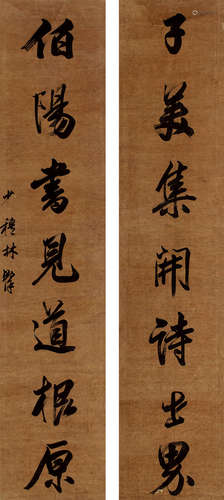 子美集開詩世界
伯陽書見道根原
少穆林則徐